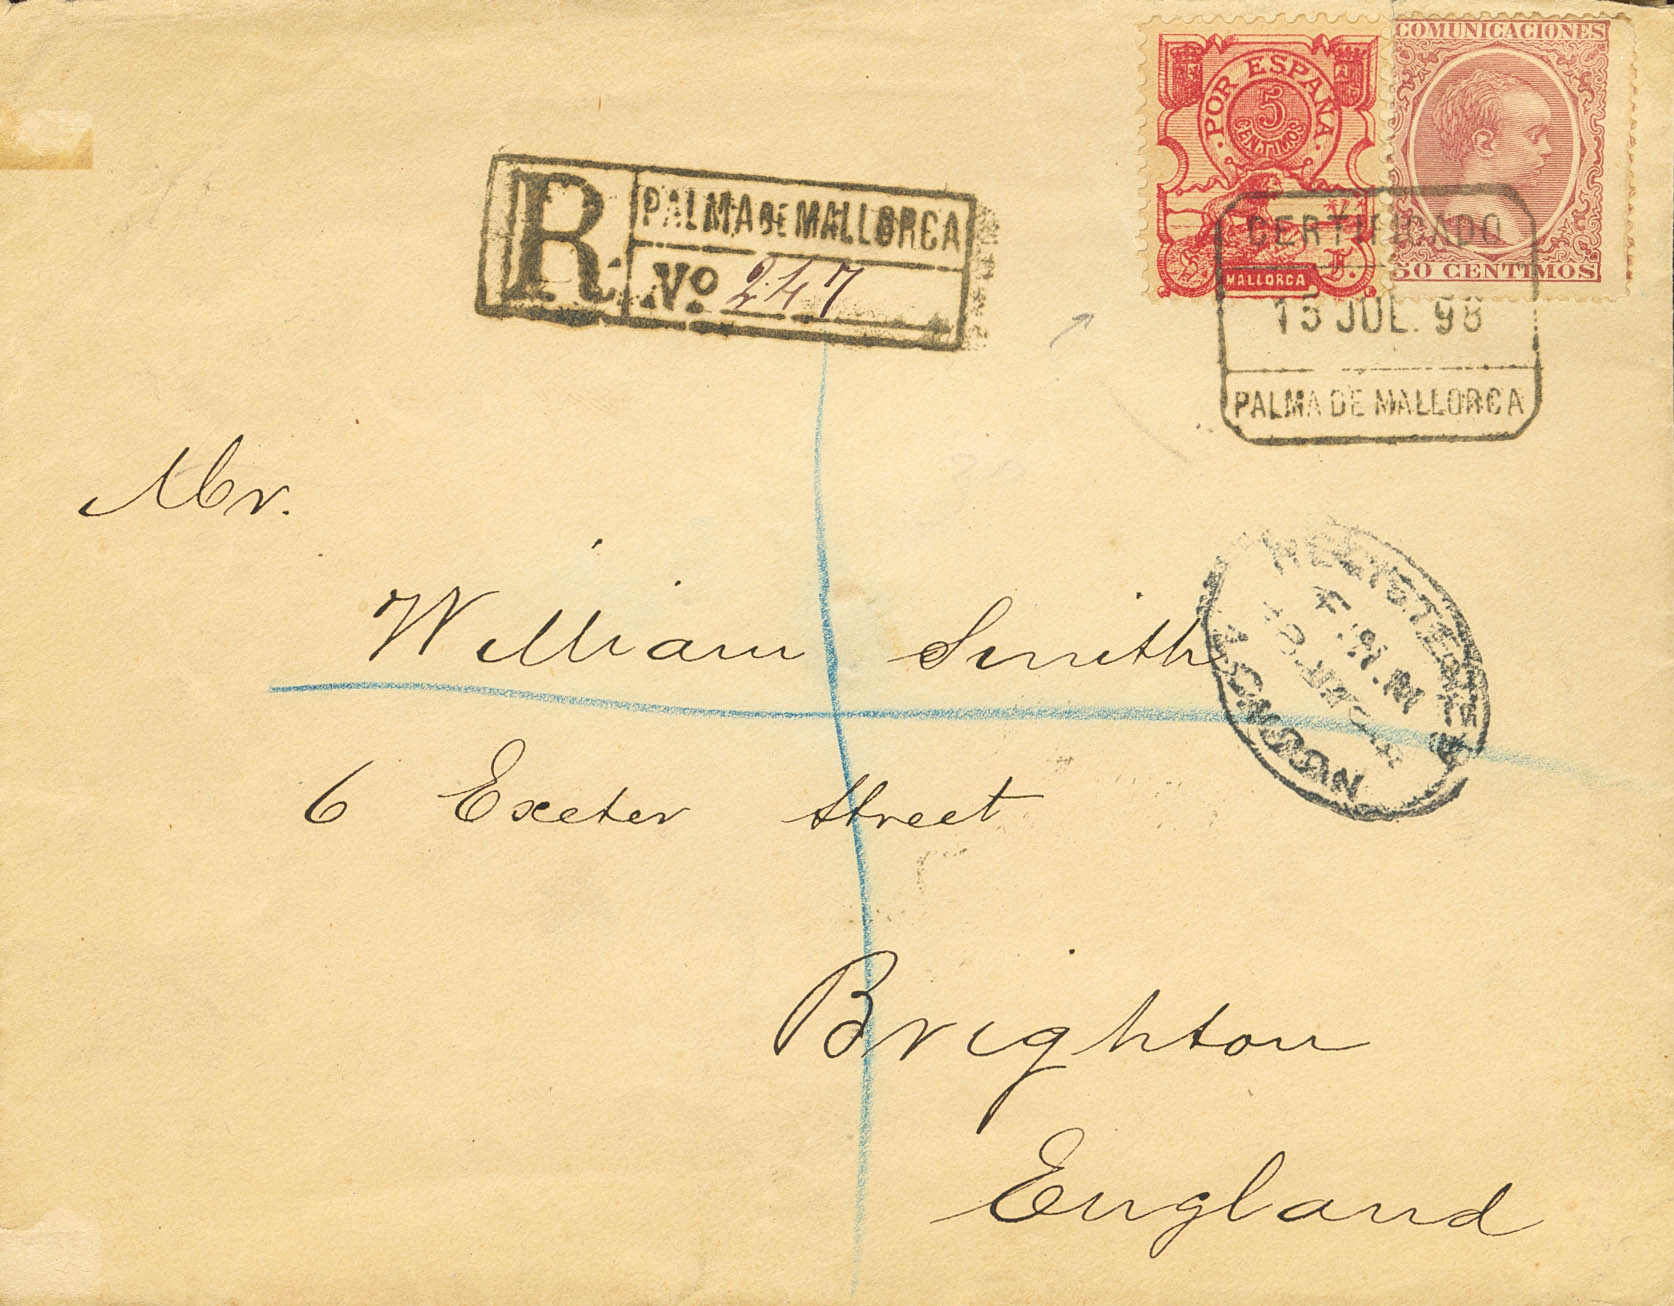 POR ESPAÑA
5
CENTIMOS
MALLORCA
COMUNICACIONES
50 CENTIMOS
R PALMA DE MALLORCA
Nº 247
CERTIFICADO
15 JUL. 98
PALMA DE MALLORCA
Mr.
William Smith
6 Exeter Street
Brighton
England
REGISTERED
LONDON